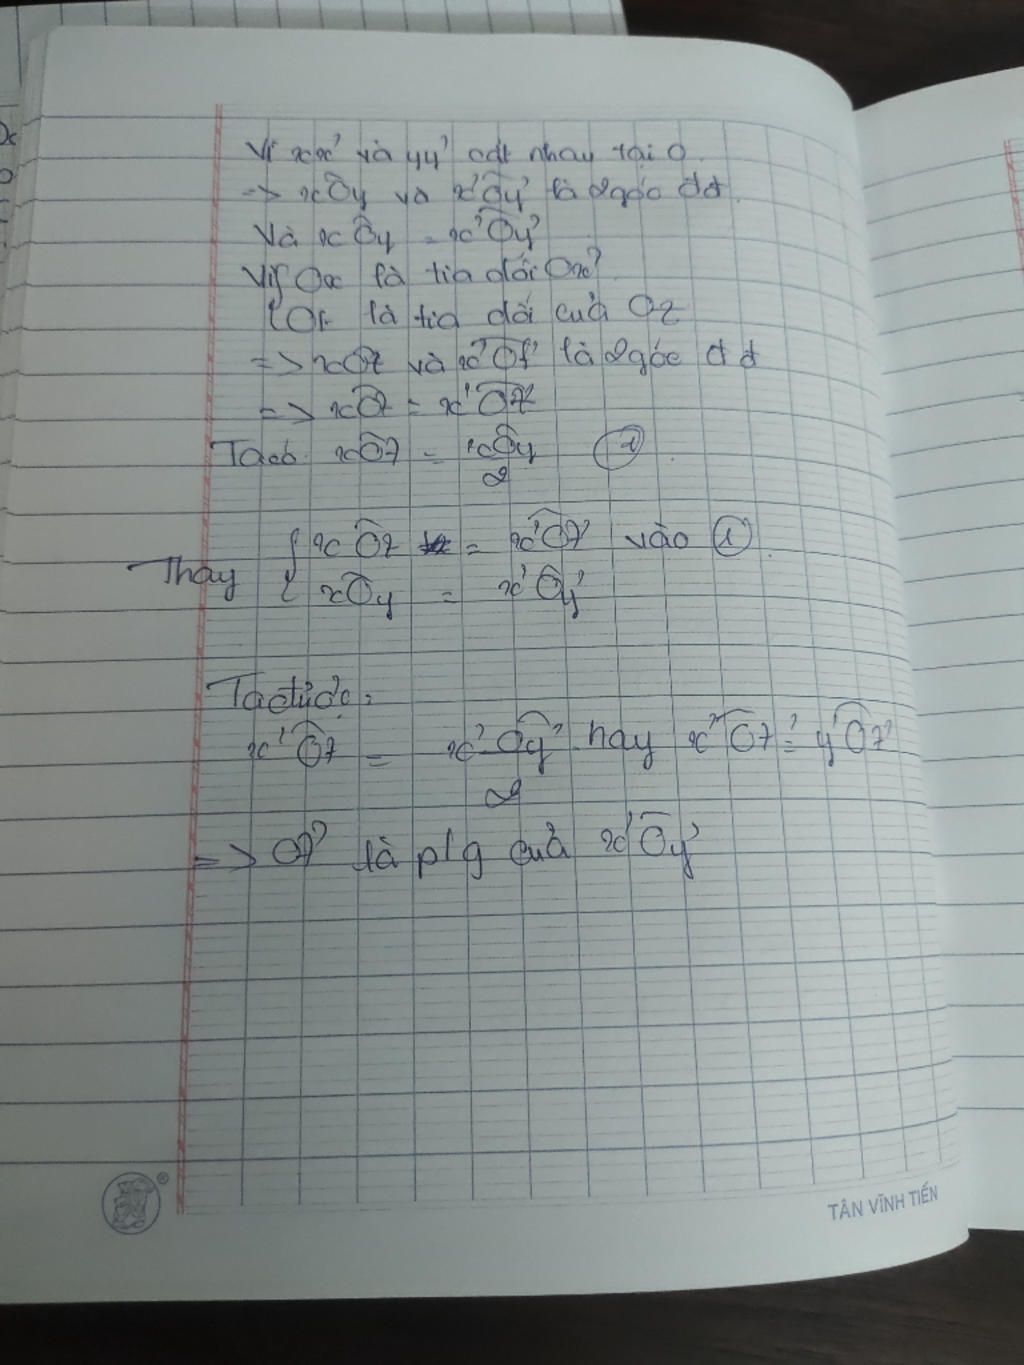 Vì xx' và yy' cắt nhau tại O.
=> xÔy và x'Ôy' là 2 góc đ đ.
Và xÔy = x'Ôy'
Vì { Ox là tia đối Ox'
Oz' là tia đối của Oz
=> xÔz và x'Ôz' là 2 góc đ đ
=> xÔz = x'Ôz'
Ta có xÔz = xÔy / 2 (1)
Thay { xÔz = x'Ôz' vào (1).
xÔy = x'Ôy'
Ta được:
x'Ôz' = x'Ôy' / 2 hay x'Ôz' = y'Ôz'
=> Oz' là p/g của x'Ôy'
TÂN VĨNH TIẾN